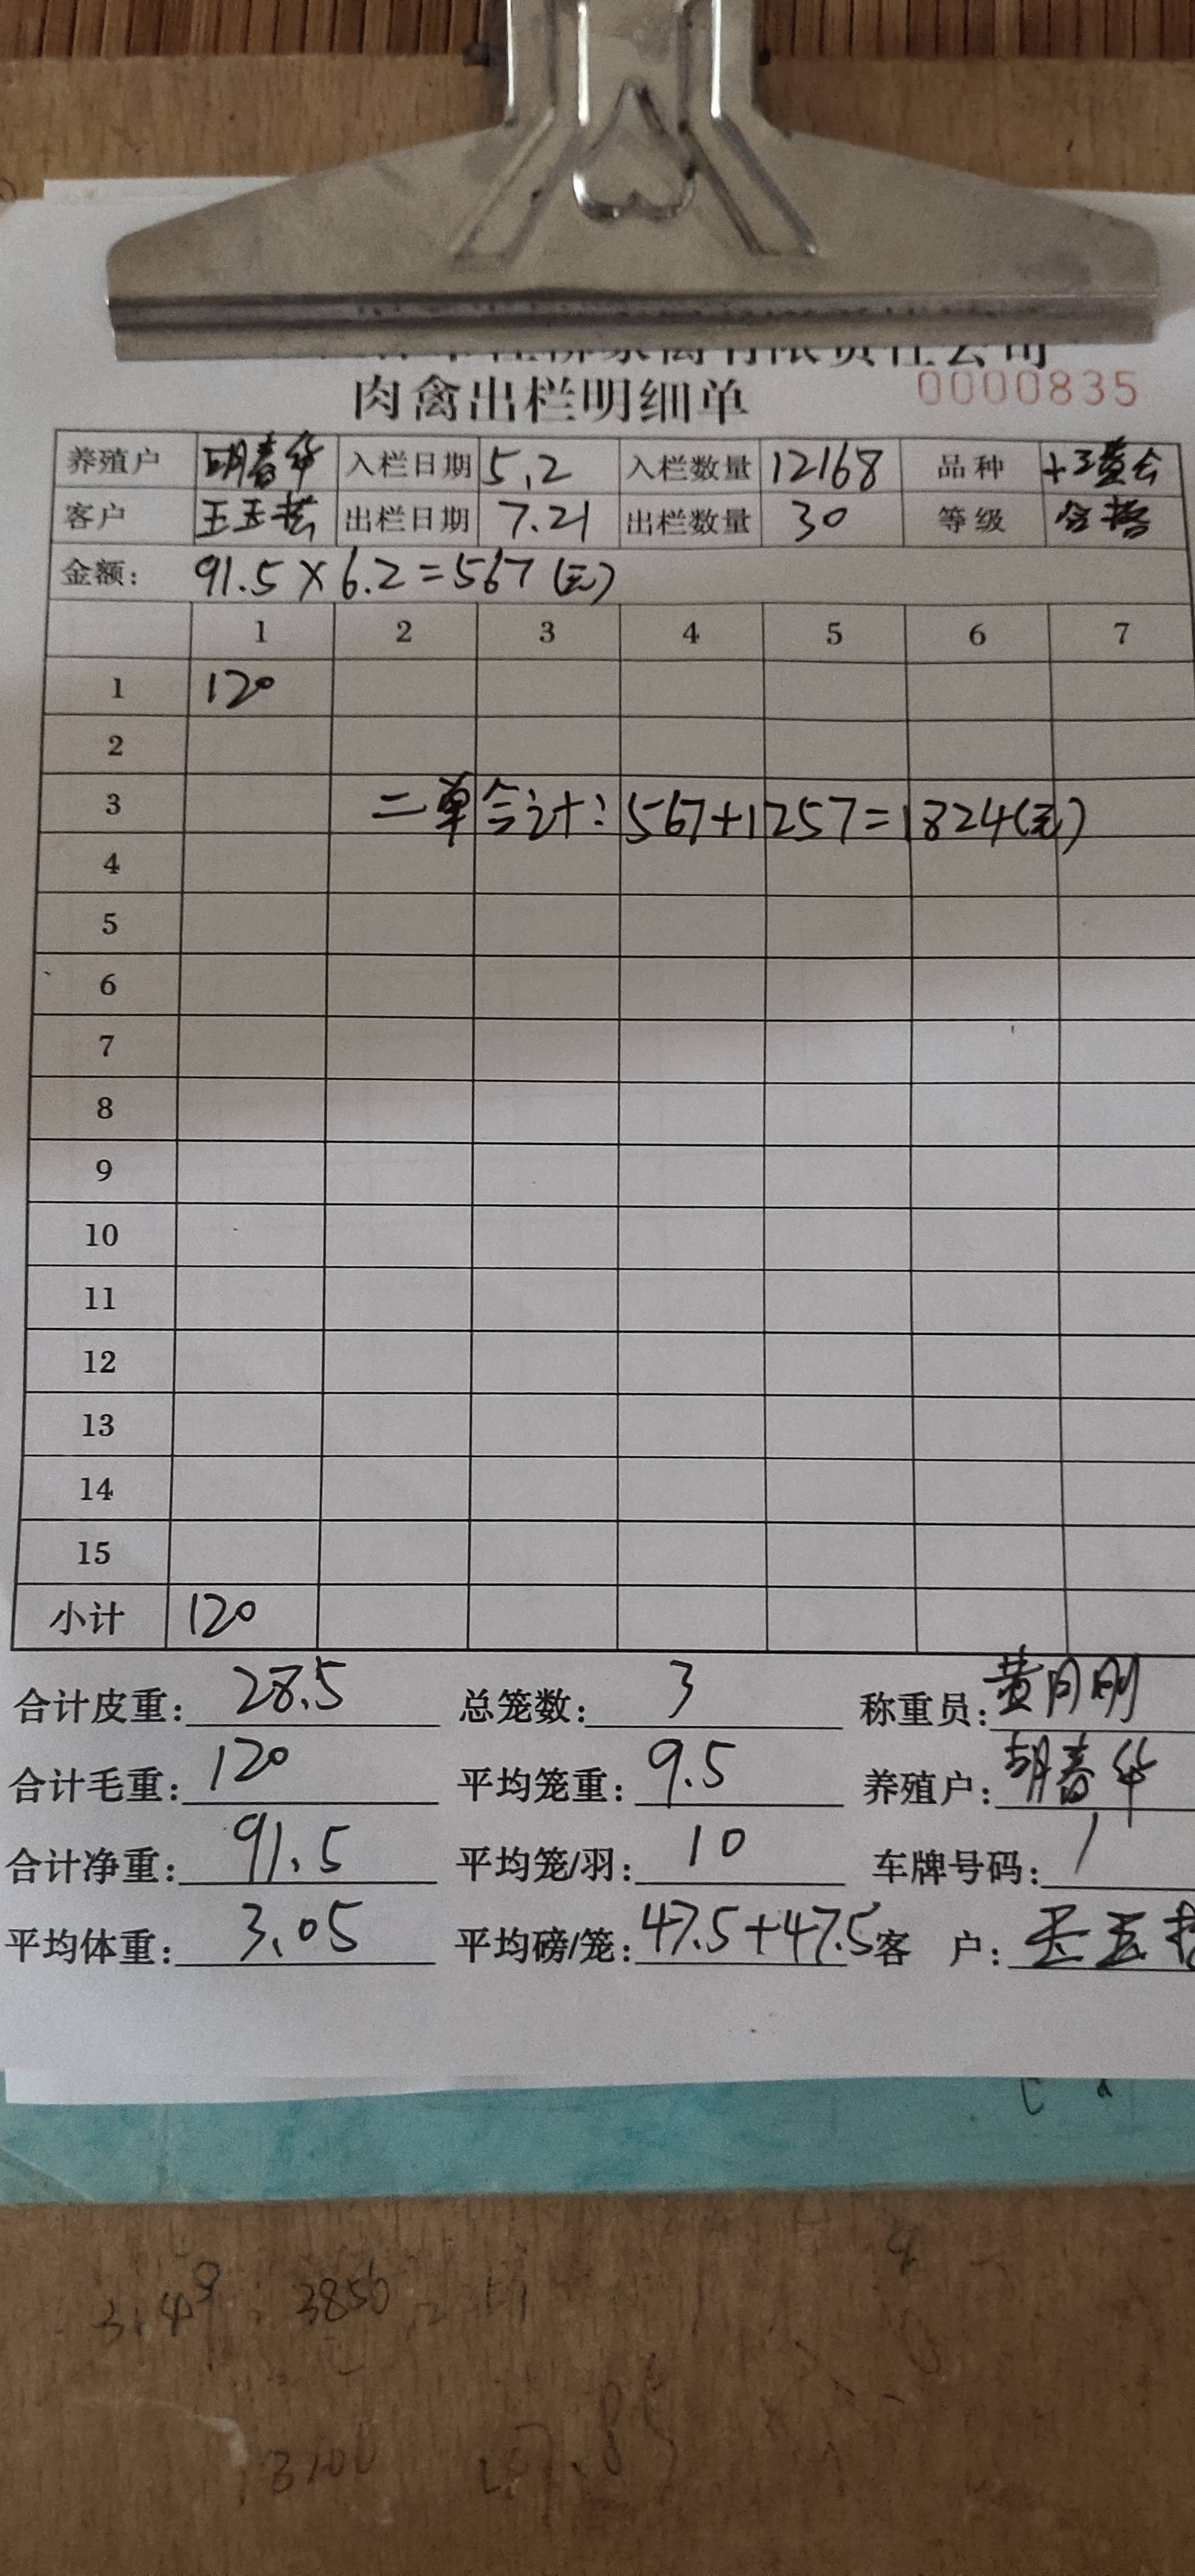 家禽有限责任公司
肉禽出栏明细单 0000835
养殖户 胡春华 入栏日期 5.2 入栏数量 12168 品种
客户 出栏日期 7.21 出栏数量 30 等级 合格
金额: 91.5×6.2=567(元)
1 2 3 4 5 6 7
1 120
2
3 二单合计:567+1257=1824(元)
4
5
6
7
8
9
10
11
12
13
14
15
小计 120
合计皮重: 28.5 总笼数: 3 称重员: 黄月刚
合计毛重: 120 平均笼重: 9.5 养殖户: 胡春华
合计净重: 91.5 平均笼/羽: 10 车牌号码: /
平均体重: 3.05 平均磅/笼: 47.5+47.5 客 户:
3856